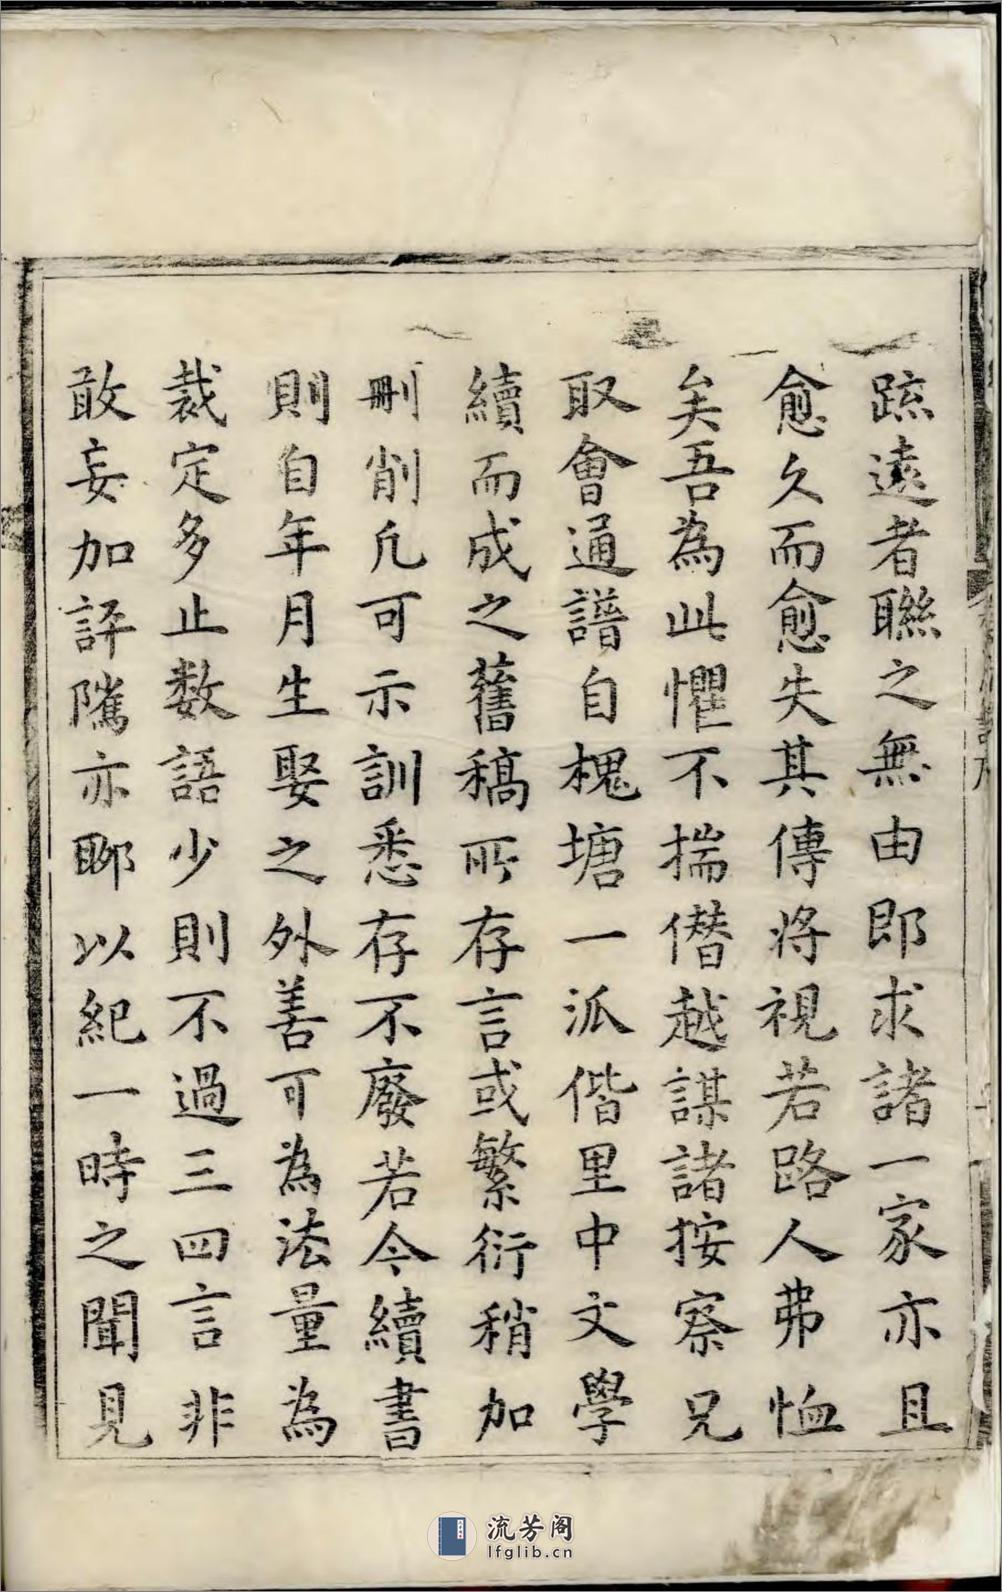 疏遠者聯之無由即求諸一家亦且
愈久而愈失其傳將視若路人弗恤
矣吾為此懼不揣僭越謀諸按察兄
取會通譜自槐塘一派偕里中文學
續而成之舊稿所存言或繁衍稍加
刪削凡可示訓悉存不廢若今續書
則自年月生娶之外善可為法量為
裁定多止数語少則不過三四言非
敢妄加評隲亦聊以紀一時之聞見
流芳阁
lfglib.cn